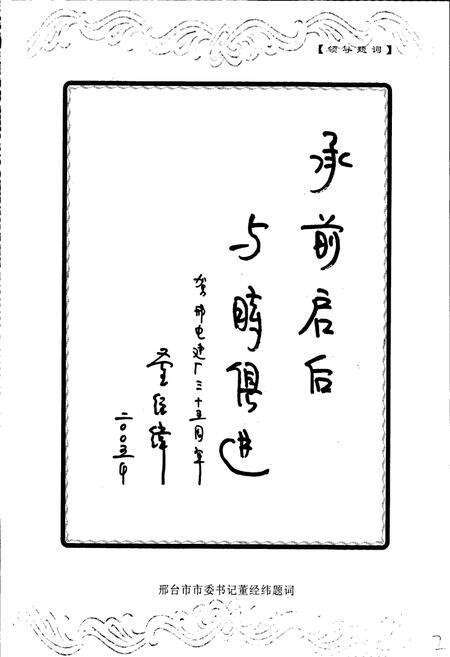 【领导题词】
承前启后
与时俱进
贺邢电建厂三十五周年
董经纬
二〇〇三年
邢台市市委书记董经纬题词
2